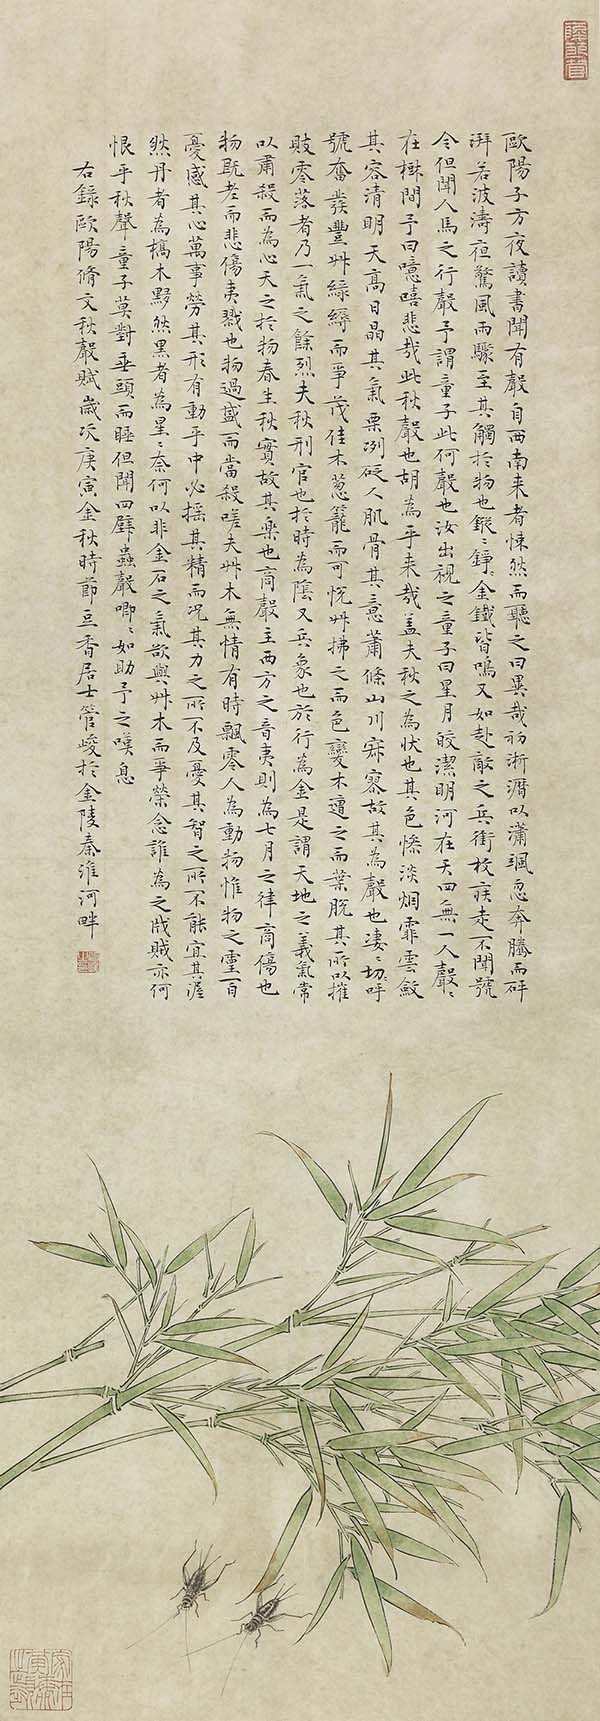 歐陽子方夜讀書聞有聲自西南来者悚然而聽之曰異哉初淅瀝以瀟颯忽奔騰而砰
湃若波濤夜驚風雨驟至其觸於物也鏦〻錚〻金鐵皆鳴又如赴敵之兵銜枚疾走不聞號
令但聞人馬之行聲予謂童子此何聲也汝出視之童子曰星月皎潔明河在天四無人聲〻
在樹間予曰噫嘻悲哉此秋聲也胡為乎来哉盖夫秋之為状也其色慘淡烟霏雲斂
其容清明天高日晶其氣栗冽砭人肌骨其意蕭條山川寂寥故其為聲也凄〻切〻呼
號奮發豐艸綠縟而爭茂佳木葱蘢而可悅艸拂之而色變木遭之而葉脫其所以摧
敗零落者乃一氣之餘烈夫秋刑官也於時為陰又兵象也於行為金是謂天地之義氣常
以肅殺而為心天之於物春生秋實故其樂也商聲主西方之音夷則為七月之律商傷也
物既老而悲傷夷戮也物過盛而當殺嗟夫艸木無情有時飄零人為動物惟物之靈百
憂感其心萬事勞其形有動乎中必摇其精而况其力之所不及憂其智之所不能宜其渥
然丹者為槁木黟然黑者為星〻奈何以非金石之氣欲與艸木而爭榮念誰為之戕賊亦何
恨乎秋聲童子莫對垂頭而睡但聞四壁蟲聲唧〻如助予之嘆息
右錄歐陽脩文秋聲賦歲次庚寅金秋時節豆香居士管峻於金陵秦淮河畔